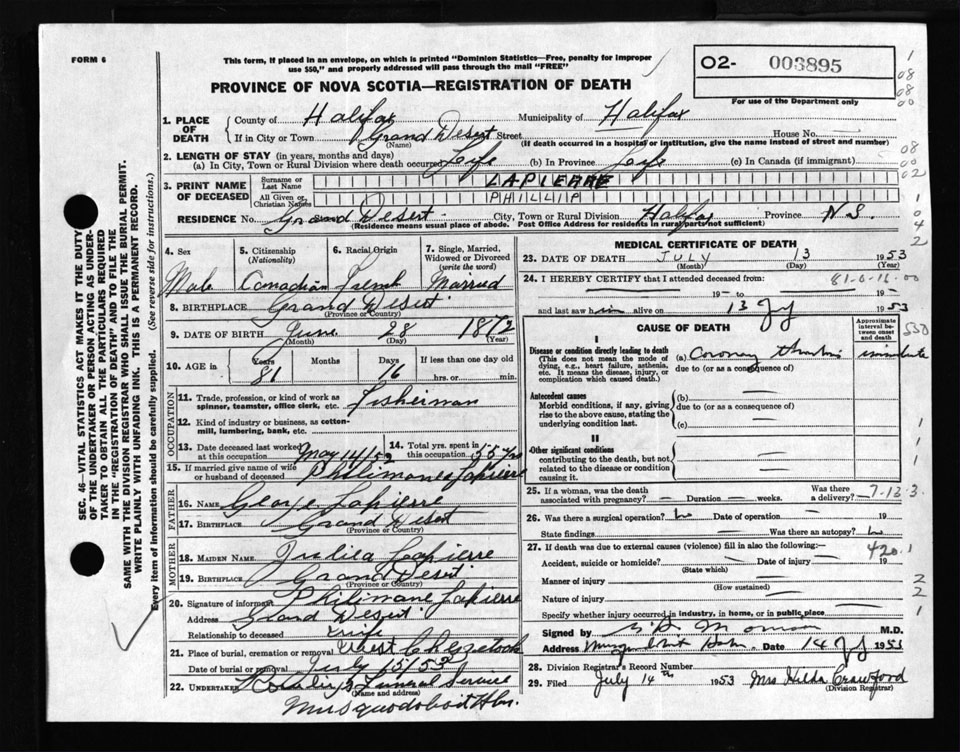 FORM 6
This form, if placed in an envelope, on which is printed "Dominion Statistics—Free, penalty for improper
use $50," and properly addressed will pass through the mail "FREE"
O2- 003895
For use of the Department only
PROVINCE OF NOVA SCOTIA—REGISTRATION OF DEATH
1. PLACE OF DEATH
County of Halifax Municipality of Halifax
If in City or Town Grand Desert Street House No.
(Name) (If death occurred in a hospital or institution, give the name instead of street and number)
2. LENGTH OF STAY (in years, months and days)
(a) In City, Town or Rural Division where death occurred Life (b) In Province Life (c) In Canada (if immigrant)
3. PRINT NAME OF DECEASED
Surname or Last Name LAPIERRE
All Given or Christian Names PHILLIP
RESIDENCE No. Grand Desert City, Town or Rural Division Halifax Province N.S.
(Residence means usual place of abode. Post Office Address for residents in rural parts not sufficient)
4. Sex Male
5. Citizenship (Nationality) Canadian
6. Racial Origin
7. Single, Married, Widowed or Divorced (write the word) Married
8. BIRTHPLACE Grand Desert
(Province or Country)
9. DATE OF BIRTH June 28 1872
(Month) (Day) (Year)
10. AGE in Years 81 Months Days 16 If less than one day old
hrs. or min.
OCCUPATION
11. Trade, profession, or kind of work as spinner, teamster, office clerk, etc. Fisherman
12. Kind of industry or business, as cotton-mill, lumbering, bank, etc.
13. Date deceased last worked at this occupation May 14/53
14. Total yrs. spent in this occupation 55 yrs
15. If married give name of wife or husband of deceased Philimane Lapierre
FATHER
16. NAME George Lapierre
17. BIRTHPLACE Grand Desert
(Province or Country)
MOTHER
18. MAIDEN NAME Lapierre
19. BIRTHPLACE Grand Desert
(Province or Country)
20. Signature of informant Philimane Lapierre
Address Grand Desert
Relationship to deceased wife
21. Place of burial, cremation or removal West Chezzetcook
Date of burial or removal July 15/53
22. UNDERTAKER Funeral Service
(Name and address)
Musquodoboit Hbr.
MEDICAL CERTIFICATE OF DEATH
23. DATE OF DEATH JULY 13 1953
(Month) (Day) (Year)
24. I HEREBY CERTIFY that I attended deceased from: 81-0-16-00
19 to 19
and last saw him alive on 13 July 1953
CAUSE OF DEATH
Approximate interval between onset and death
I
Disease or condition directly leading to death
This does not mean the mode of dying, e.g., heart failure, asthenia, etc. It means the disease, injury, or complication which caused death.
(a) Coronary Thrombosis immediate
due to (or as a consequence of)
Antecedent causes
Morbid conditions, if any, giving rise to the above cause, stating the underlying condition last.
(b)
due to (or as a consequence of)
(c)
II
Other significant conditions
contributing to the death, but not related to the disease or condition causing it.
25. If a woman, was the death associated with pregnancy? Duration weeks. Was there a delivery? 7-13-3
26. Was there a surgical operation? No Date of operation 19
State findings Was there an autopsy? No
27. If death was due to external causes (violence) fill in also the following:— 420.1
Accident, suicide or homicide? Date of injury 19
(State which)
Manner of injury
(How sustained)
Nature of injury
Specify whether injury occurred in industry, in home, or in public place
Signed by M.D.
Address Date 14 July 1953
28. Division Registrar's Record Number
29. Filed July 14th 1953 Mrs Hilda Crawford
(Division Registrar)
SEC. 46—VITAL STATISTICS ACT MAKES IT THE DUTY
OF THE UNDERTAKER OR PERSON ACTING AS UNDER-
TAKER TO OBTAIN ALL THE PARTICULARS REQUIRED
IN THE "REGISTRATION OF DEATH" AND TO FILE THE
SAME WITH THE DIVISION REGISTRAR WHO SHALL ISSUE THE BURIAL PERMIT.
WRITE PLAINLY WITH UNFADING INK. THIS IS A PERMANENT RECORD.
Every item of information should be carefully supplied. (See reverse side for instructions.)
1
08
08
00
08
00
02
1
0
4
2
530
1
1
1
2
2
1